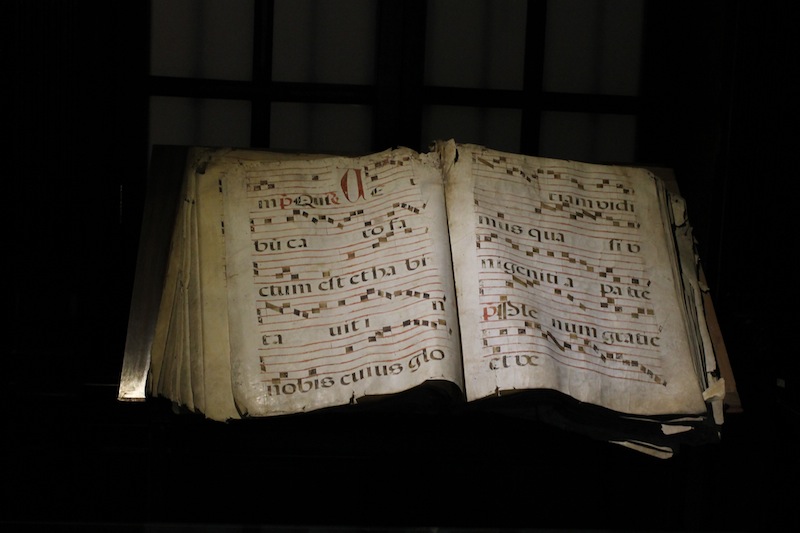 bū ca ro fa
ctum est et ha bi
ta uit i n
nobis cuius glo
riam vidi
mus qua si v
nigeniti a patre
ple num gratie
et ve